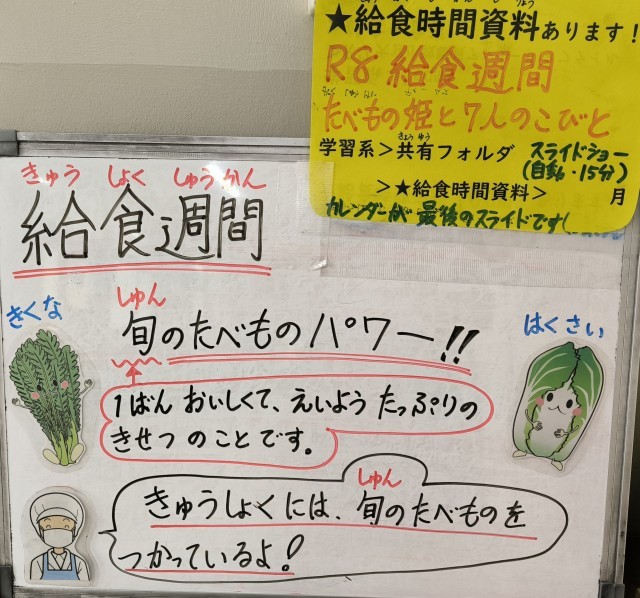 ★給食時間資料あります！
R8 給食週間
たべもの姫と7人のこびと
きょうゆう
学習系＞共有フォルダ スライドショー
(自動・15分)
＞★給食時間資料＞ 月
カレンダーが最後のスライドです
きゅう しょく しゅう かん
給食週間
しゅん
きくな
旬のたべものパワー!!
はくさい
1ばん おいしくて、えいよう たっぷりの
きせつ のことです。
しゅん
きゅうしょくには、旬のたべものを
つかっているよ！